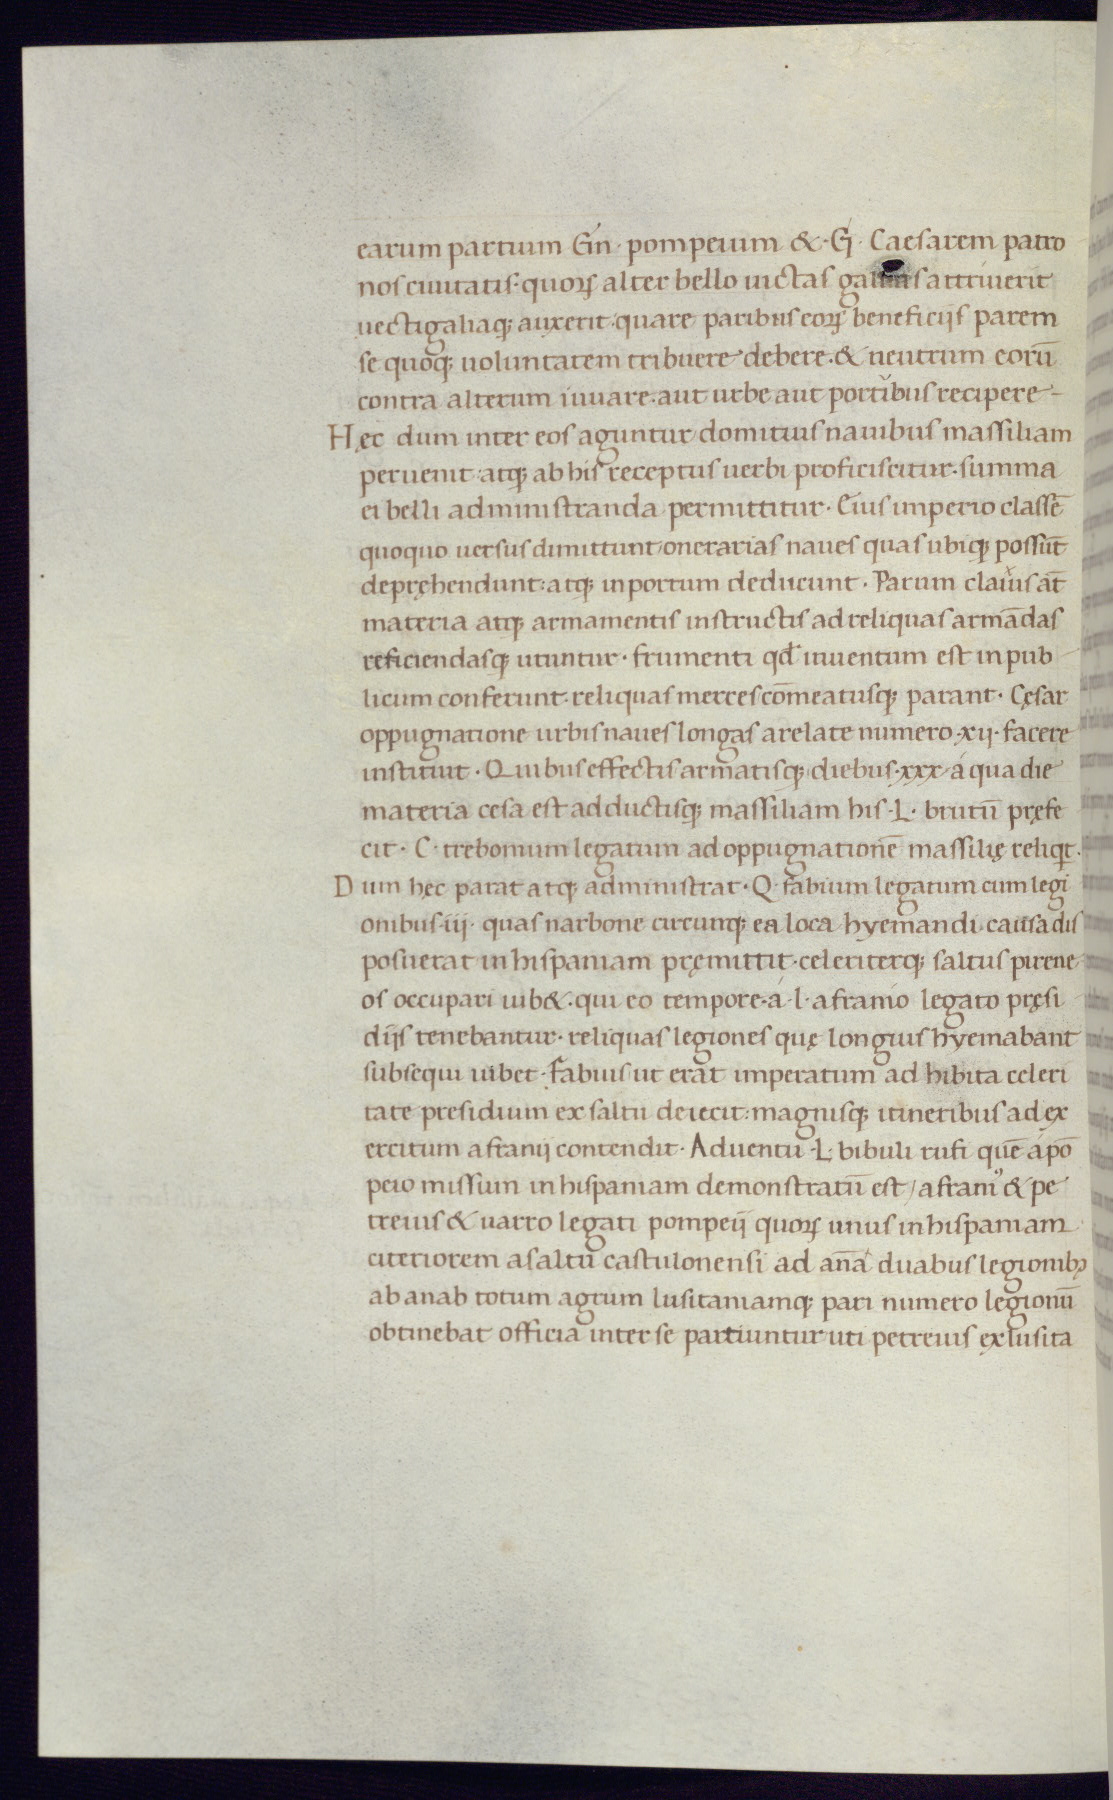 earum partium Gn̄· pompeium &· G· Caesarem patro
nos ciuitatis· quorꝝ alter bello uictas gallias attriuerit
uectigaliaqꝫ auxerit· quare paribus eorꝝ beneficijs parem
se quoqꝫ uoluntatem tribuere debere· & neutrum eorū
contra alterum iuuare· aut urbe aut portibus recipere
Hęc dum inter eos aguntur domitius nauibus massiliam
peruenit: atqꝫ ab his receptus uerbi proficiscitur· summa
ei belli administranda permittitur· Eius imperio classē
quoquo uersus dimittunt onerarias naues quas ubiqꝫ possūt
depręhendunt: atqꝫ in portum deducunt· Parum clauis at̄
materia atqꝫ armamentis instructis ad reliquas armādas
reficiendasqꝫ utuntur· frumenti qd̄ inuentum est in pub
licum conferunt· reliquas merces cōmeatusqꝫ parant· Cęsar
oppugnatione urbis naues longas arelate numero ·xij· facere
instituit· Quibus effectis armatisqꝫ diebus ·xxx· á qua die
materia cesa est adductisqꝫ massiliam his ·L· brutū pręfe
cit· C· trebonium legatum ad oppugnationē massilię reliqt·
Dum hęc parat atqꝫ administrat· Q· fabium legatum cum legi
onibus ·iij· quas narbone circumqꝫ ea loca hyemandi causa dis
posuerat in hispaniam pręmittit· celeriterqꝫ saltus pirene
os occupari iub&· qui eo tempore· á ·l· afranio legato pręsi
dijs tenebantur· reliquas legiones quę longius hyemabant
subsequi iubet· Fabius ut erat imperatum adhibita celeri
tate presidium ex saltu deiecit: magnisqꝫ itineribus ad ex
ercitum afranij contendit· Aduentu ·L· bibuli rufi quē á pō
peio missum in hispaniam demonstratū est / afranius & pe
treius & uarro legati pompeij quorꝝ unus in hispaniam
citeriorem a saltū castulonensi ad anā duabus legionibꝫ
ab anab totum agrum lusitaniamqꝫ pari numero legionū
obtinebat officia inter se partiuntur uti petreius ex lusita